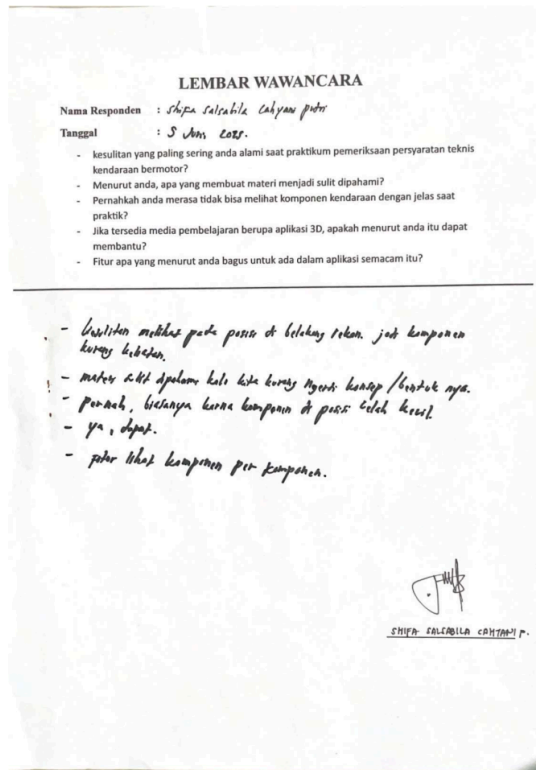 LEMBAR WAWANCARA
Nama Responden : Shifa Salsabila Cahyani putri
Tanggal : 5 Juni 2025.
- kesulitan yang paling sering anda alami saat praktikum pemeriksaan persyaratan teknis
kendaraan bermotor?
- Menurut anda, apa yang membuat materi menjadi sulit dipahami?
- Pernahkah anda merasa tidak bisa melihat komponen kendaraan dengan jelas saat
praktik?
- Jika tersedia media pembelajaran berupa aplikasi 3D, apakah menurut anda itu dapat
membantu?
- Fitur apa yang menurut anda bagus untuk ada dalam aplikasi semacam itu?
- kesulitan melihat pada posisi di belakang rekan. jadi komponen
kurang kelihatan.
- materi sulit dipahami kalo kita kurang ngerti konsep/bentuk nya.
- pernah, biasanya karna komponen di posisi kecil
- ya, dapat.
- fitur lihat komponen per komponen.
SHIFA SALSABILA CAHYANI P.